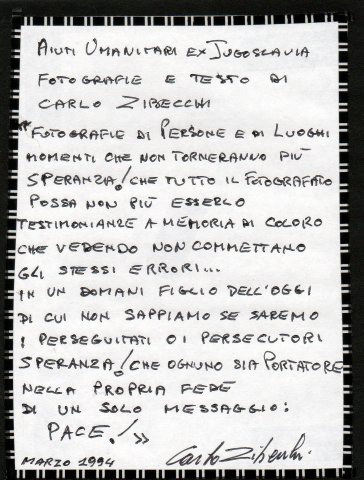 AIUTI UMANITARI EX JUGOSLAVIA
FOTOGRAFIE E TESTO DI
CARLO ZIBECCHI
"FOTOGRAFIE DI PERSONE E DI LUOGHI
MOMENTI CHE NON TORNERANNO PIÙ
SPERANZA! CHE TUTTO IL FOTOGRAFATO
POSSA NON PIÙ ESSERLO
TESTIMONIANZE A MEMORIA DI COLORO
CHE VEDENDO NON COMMETTANO
GLI STESSI ERRORI...
IN UN DOMANI FIGLIO DELL'OGGI
DI CUI NON SAPPIAMO SE SAREMO
I PERSEGUITATI O I PERSECUTORI
SPERANZA! CHE OGNUNO SIA PORTATORE
NELLA PROPRIA FEDE
DI UN SOLO MESSAGGIO:
PACE! »
MARZO 1994 Carlo Zibecchi